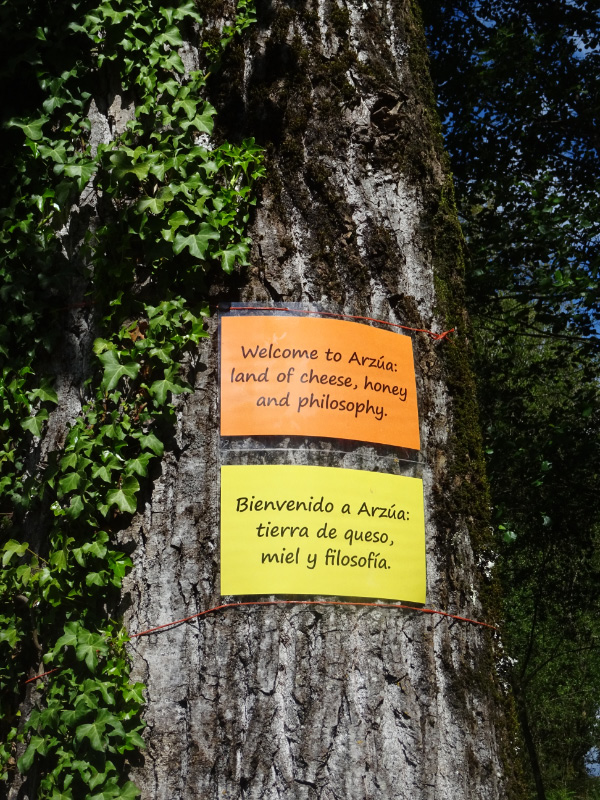 Welcome to Arzúa:
land of cheese, honey
and philosophy.
Bienvenido a Arzúa:
tierra de queso,
miel y filosofía.